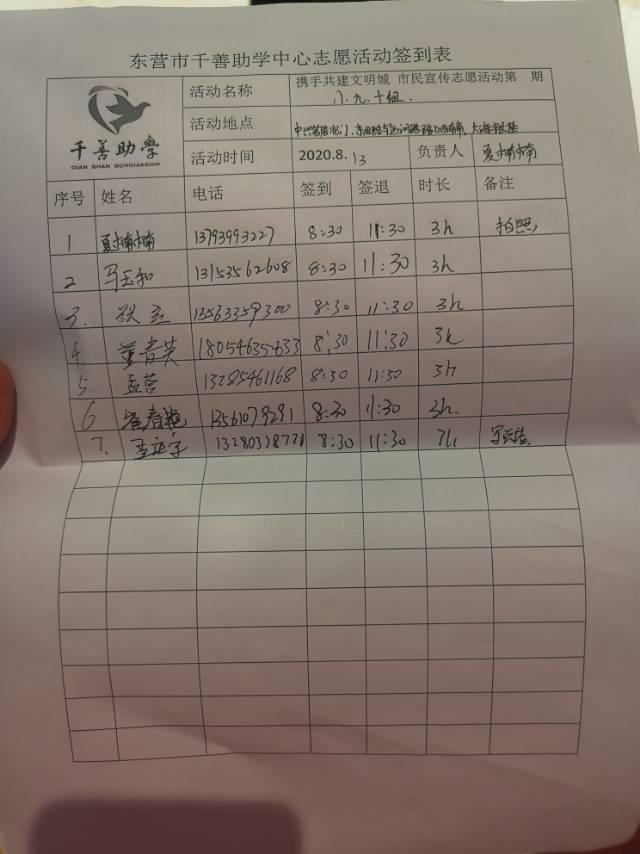 东营市千善助学中心志愿活动签到表
千善助学
QIAN SHAN SCHOLARSHIP
活动名称 携手共建文明城 市民宣传志愿活动第 期
八.九.十组.
活动地点
活动时间 2020.8.13 负责人 夏楠楠
序号 姓名 电话 签到 签退 时长 备注
1 夏楠楠 13793993227 8:30 11:30 3h 拍照
2 马玉和 13153562608 8:30 11:30 3h
3. 13563359300 8:30 11:30 3h
4. 董青英 18054635633 8:30 11:30 3h
5. 孟营 13285461168 8:30 11:30 3h
6 13561079291 8:30 11:30 3h.
7. 8:30 11:30